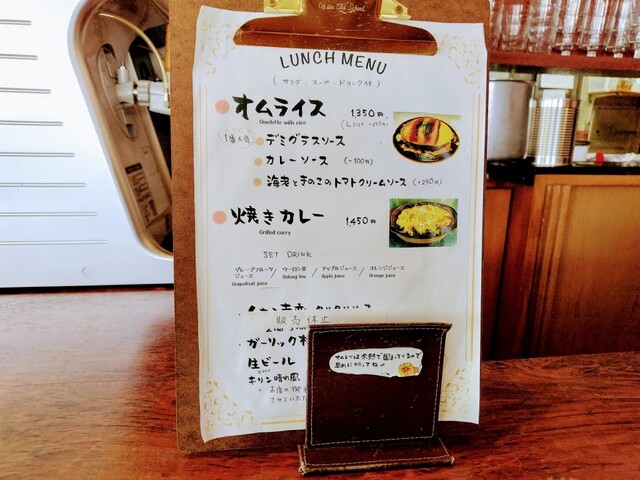 Old School
LUNCH MENU
(サラダ・スープ ドリンク付)
オムライス 1,350円
Omelette with rice
1番人気 デミグラスソース
カレーソース (+100円)
海老ときのこのトマトクリームソース (+250円)
焼きカレー 1,450円
Grilled curry
SET DRINK
グレープフルーツジュース / ウーロン茶 / アップルジュース / オレンジジュース
Grapefruit juice Oolong tea Apple juice Orange juice
販売休止
・ガーリック
生ビール
キリン晴れ風
オムレツは余熱で固まってくるので
早めに